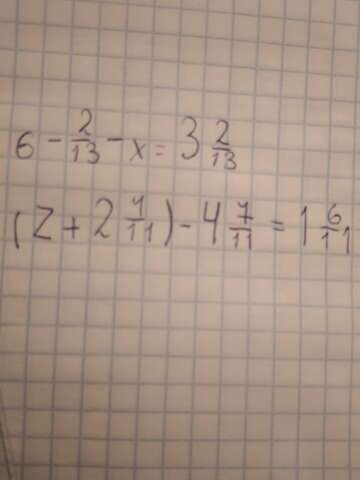 6 - 2/13 - x = 3 2/13
(Z + 2 4/11) - 4 7/11 = 1 6/11